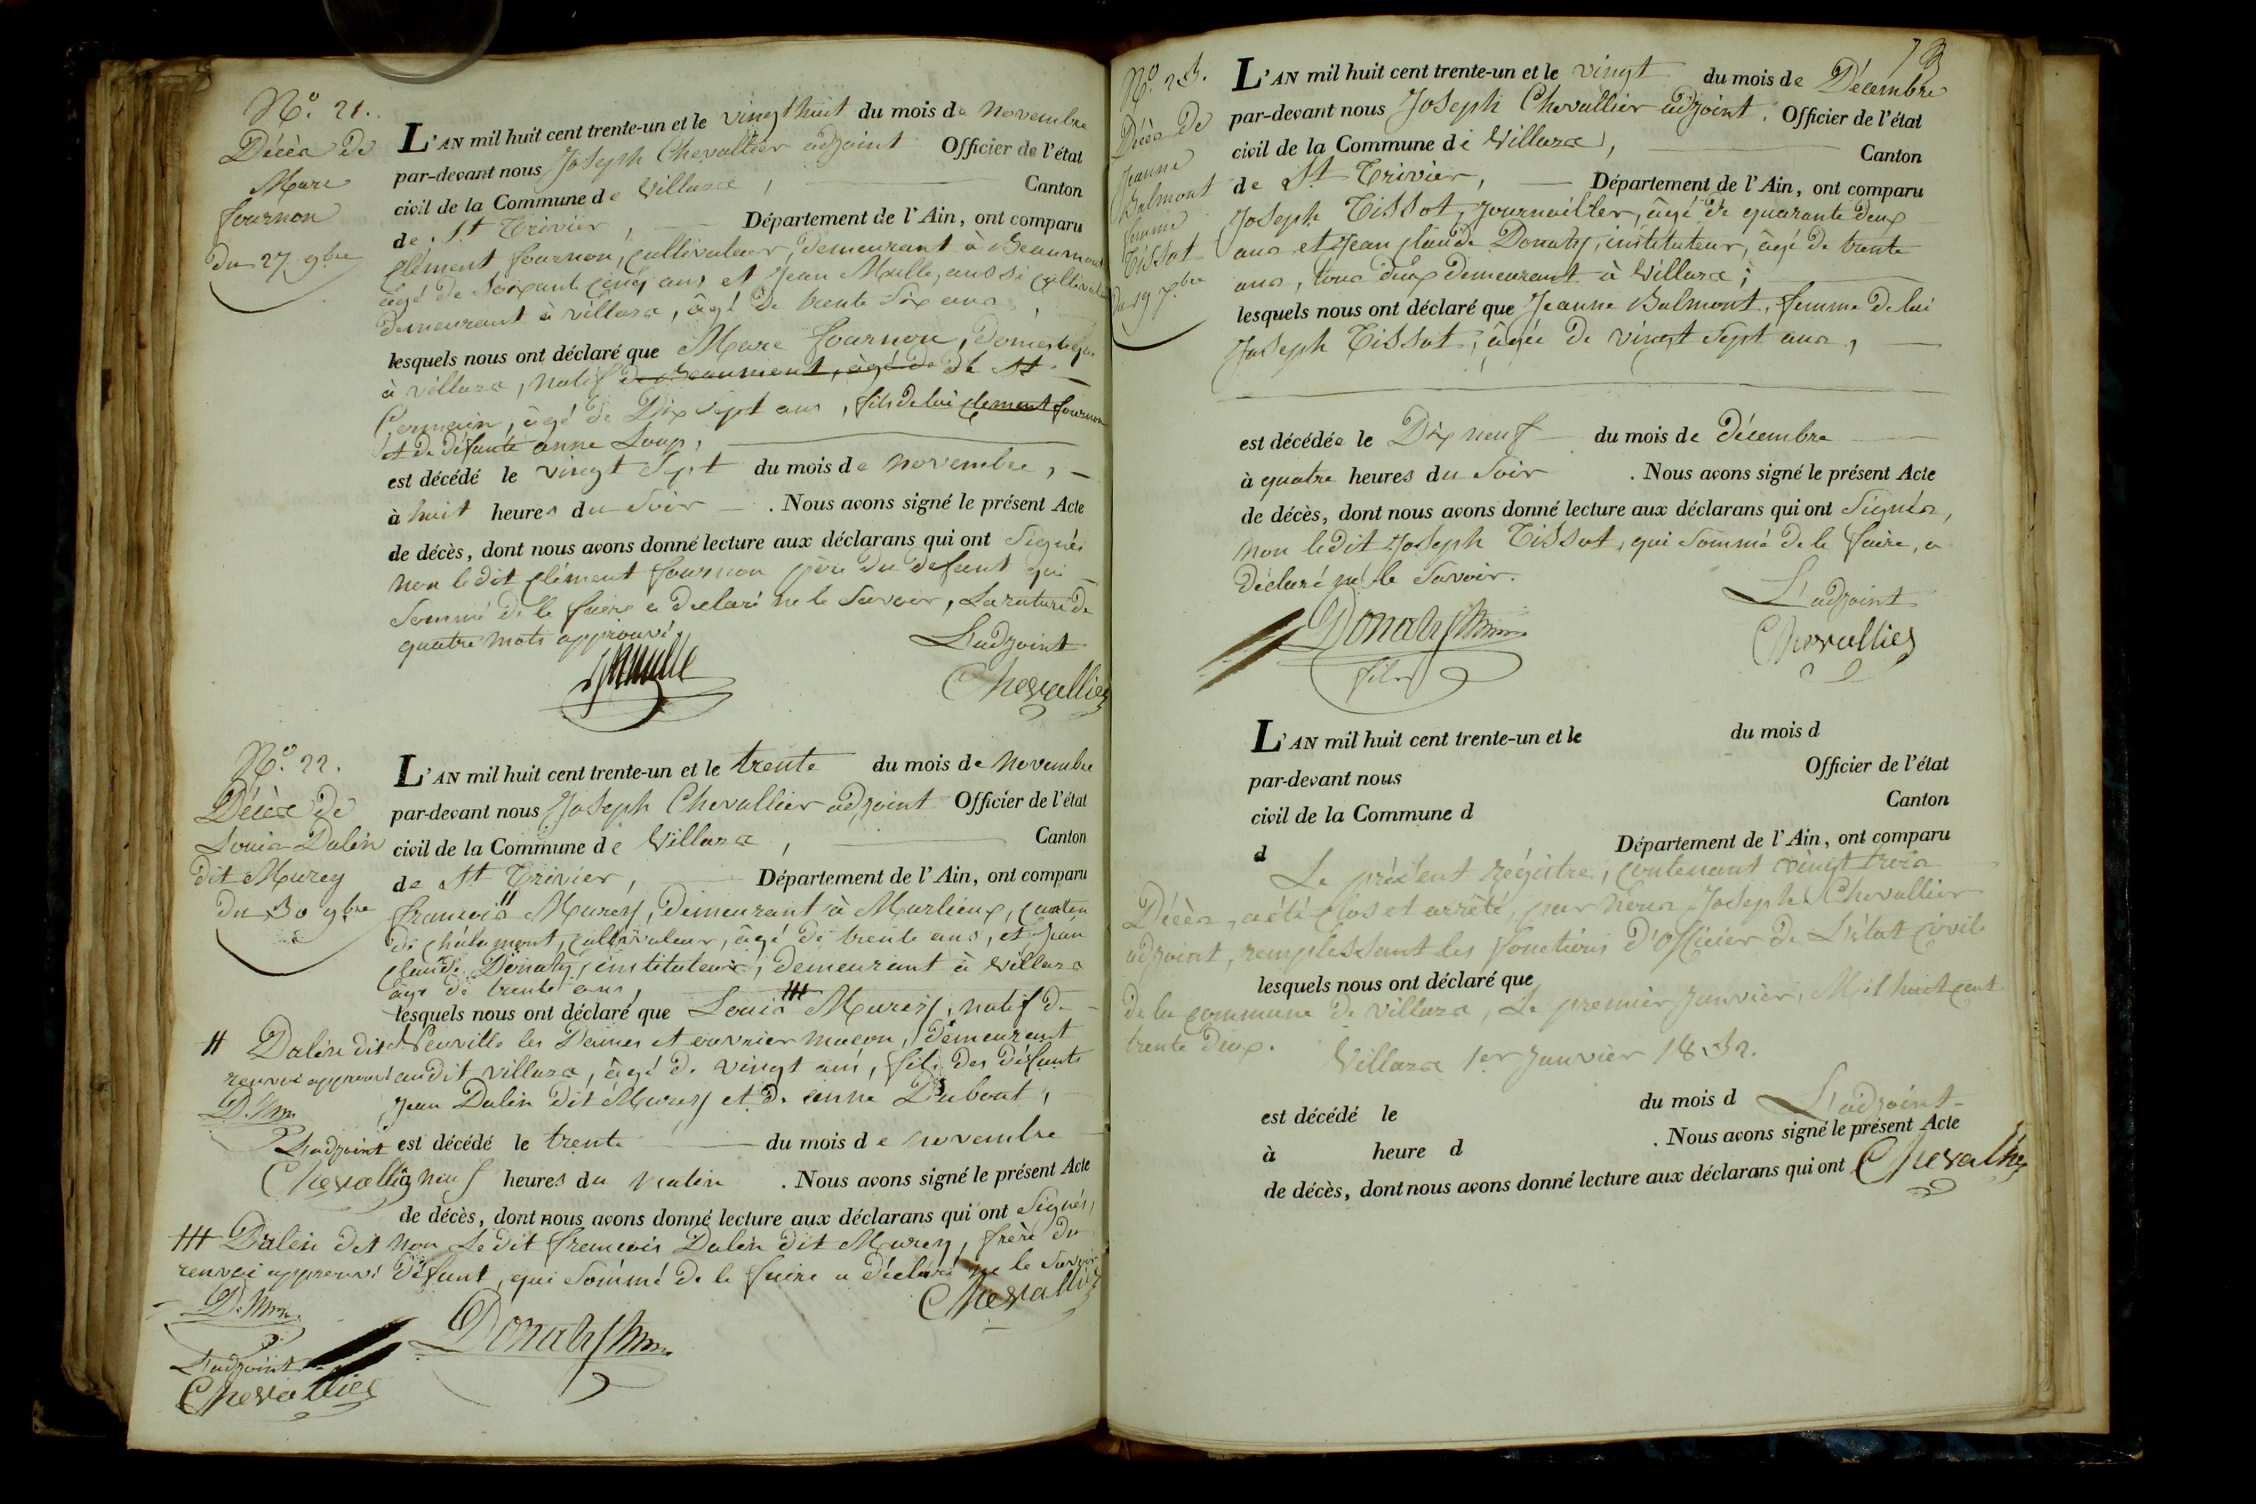 N.o 21.
Décès de
Marc
fournon
du 27 9bre
L'AN mil huit cent trente-un et le vingt huit du mois de novembre
par-devant nous Joseph Chevallier adjoint Officier de l'état
civil de la Commune de Villars, Canton
de St Trivier, Département de l'Ain, ont comparu
Clément fournon, cultivateur, demeurant à Beaumont
âgé de soixante cinq ans et Jean Mulle, aussi cultivateur
demeurant à villars, âgé de trente six ans
lesquels nous ont déclaré que Marc fournon, domestique
à villars, natif de Beaumont, âgé de de St
Germain, âgé de Dix sept ans, fils de lui Clement fournon
et de défunte anne Loup,
est décédé le vingt sept du mois de novembre,
à huit heures du soir . Nous avons signé le présent Acte
de décès, dont nous avons donné lecture aux déclarans qui ont signés
non le dit Clément fournon père du defunt qui
sommé de le faire a déclaré ne le savoir, La rature de
quatre mots approuvé.
L'adjoint
Chevallier
N.o 22.
Décès de
Louis Dalin
dit Murey
du 30 9bre
L'AN mil huit cent trente-un et le trente du mois de novembre
par-devant nous Joseph Chevallier adjoint Officier de l'état
civil de la Commune de Villars, Canton
de St Trivier, Département de l'Ain, ont comparu
francois # Murey, demeurant à Marlieux, canton
de Chalamont, cultivateur, âgé de trente ans, et Jean
claude Donaty, instituteur, demeurant à Villars
âgé de trente ans,
lesquels nous ont déclaré que Louis Murey, natif de
# Dalin dit Neuville les Dames et ouvrier maçon, demeurant
renvoi approuvé audit villars, âgé de vingt ans, fils des défunts
D. Jean Dalin dit Murey et de anne Dubost,
L'adjoint est décédé le trente du mois de novembre
Chevallier à neuf heures du matin . Nous avons signé le présent Acte
de décès, dont nous avons donné lecture aux déclarans qui ont signés,
Dalin dit non Le dit francois Dalin dit Murey, frère du
renvoi approuvé défunt, qui sommé de le faire a déclaré ne le savoir
Chevallier
D.
Donaty
L'adjoint
Chevallier
73
N.o 23.
Décès de
Jeanne
Balmont
femme
Tissot
du 19 xbre
L'AN mil huit cent trente-un et le vingt du mois de Décembre
par-devant nous Joseph Chevallier adjoint. Officier de l'état
civil de la Commune de Villars, Canton
de St Trivier, Département de l'Ain, ont comparu
Joseph Tissot, journailler, âgé de quarante deux
ans et Jean Claude Donaty, instituteur, âgé de trente
ans, tous deux demeurant à Villars;
lesquels nous ont déclaré que Jeanne Balmont, femme de lui
Joseph Tissot, âgée de vingt sept ans,
est décédée le Dix neuf du mois de décembre
à quatre heures du soir . Nous avons signé le présent Acte
de décès, dont nous avons donné lecture aux déclarans qui ont signés,
non ledit Joseph Tissot, qui sommé de le faire, a
déclaré ne le savoir.
L'adjoint
Donaty
Chevallier
fils
L'AN mil huit cent trente-un et le du mois d
par-devant nous Officier de l'état
civil de la Commune d Canton
d Département de l'Ain, ont comparu
Le présent régistre, contenant vingt trois
Décès, a été clos et arrêté, par nous Joseph Chevallier
adjoint, remplissant les fonctions d'Officier de L'état civil
lesquels nous ont déclaré que
de la commune de villars, Le premier Janvier, Mil huit cent
trente deux.
Villars 1er Janvier 1832.
est décédé le du mois d
L'adjoint
à heure d . Nous avons signé le présent Acte
de décès, dont nous avons donné lecture aux déclarans qui ont Chevallier